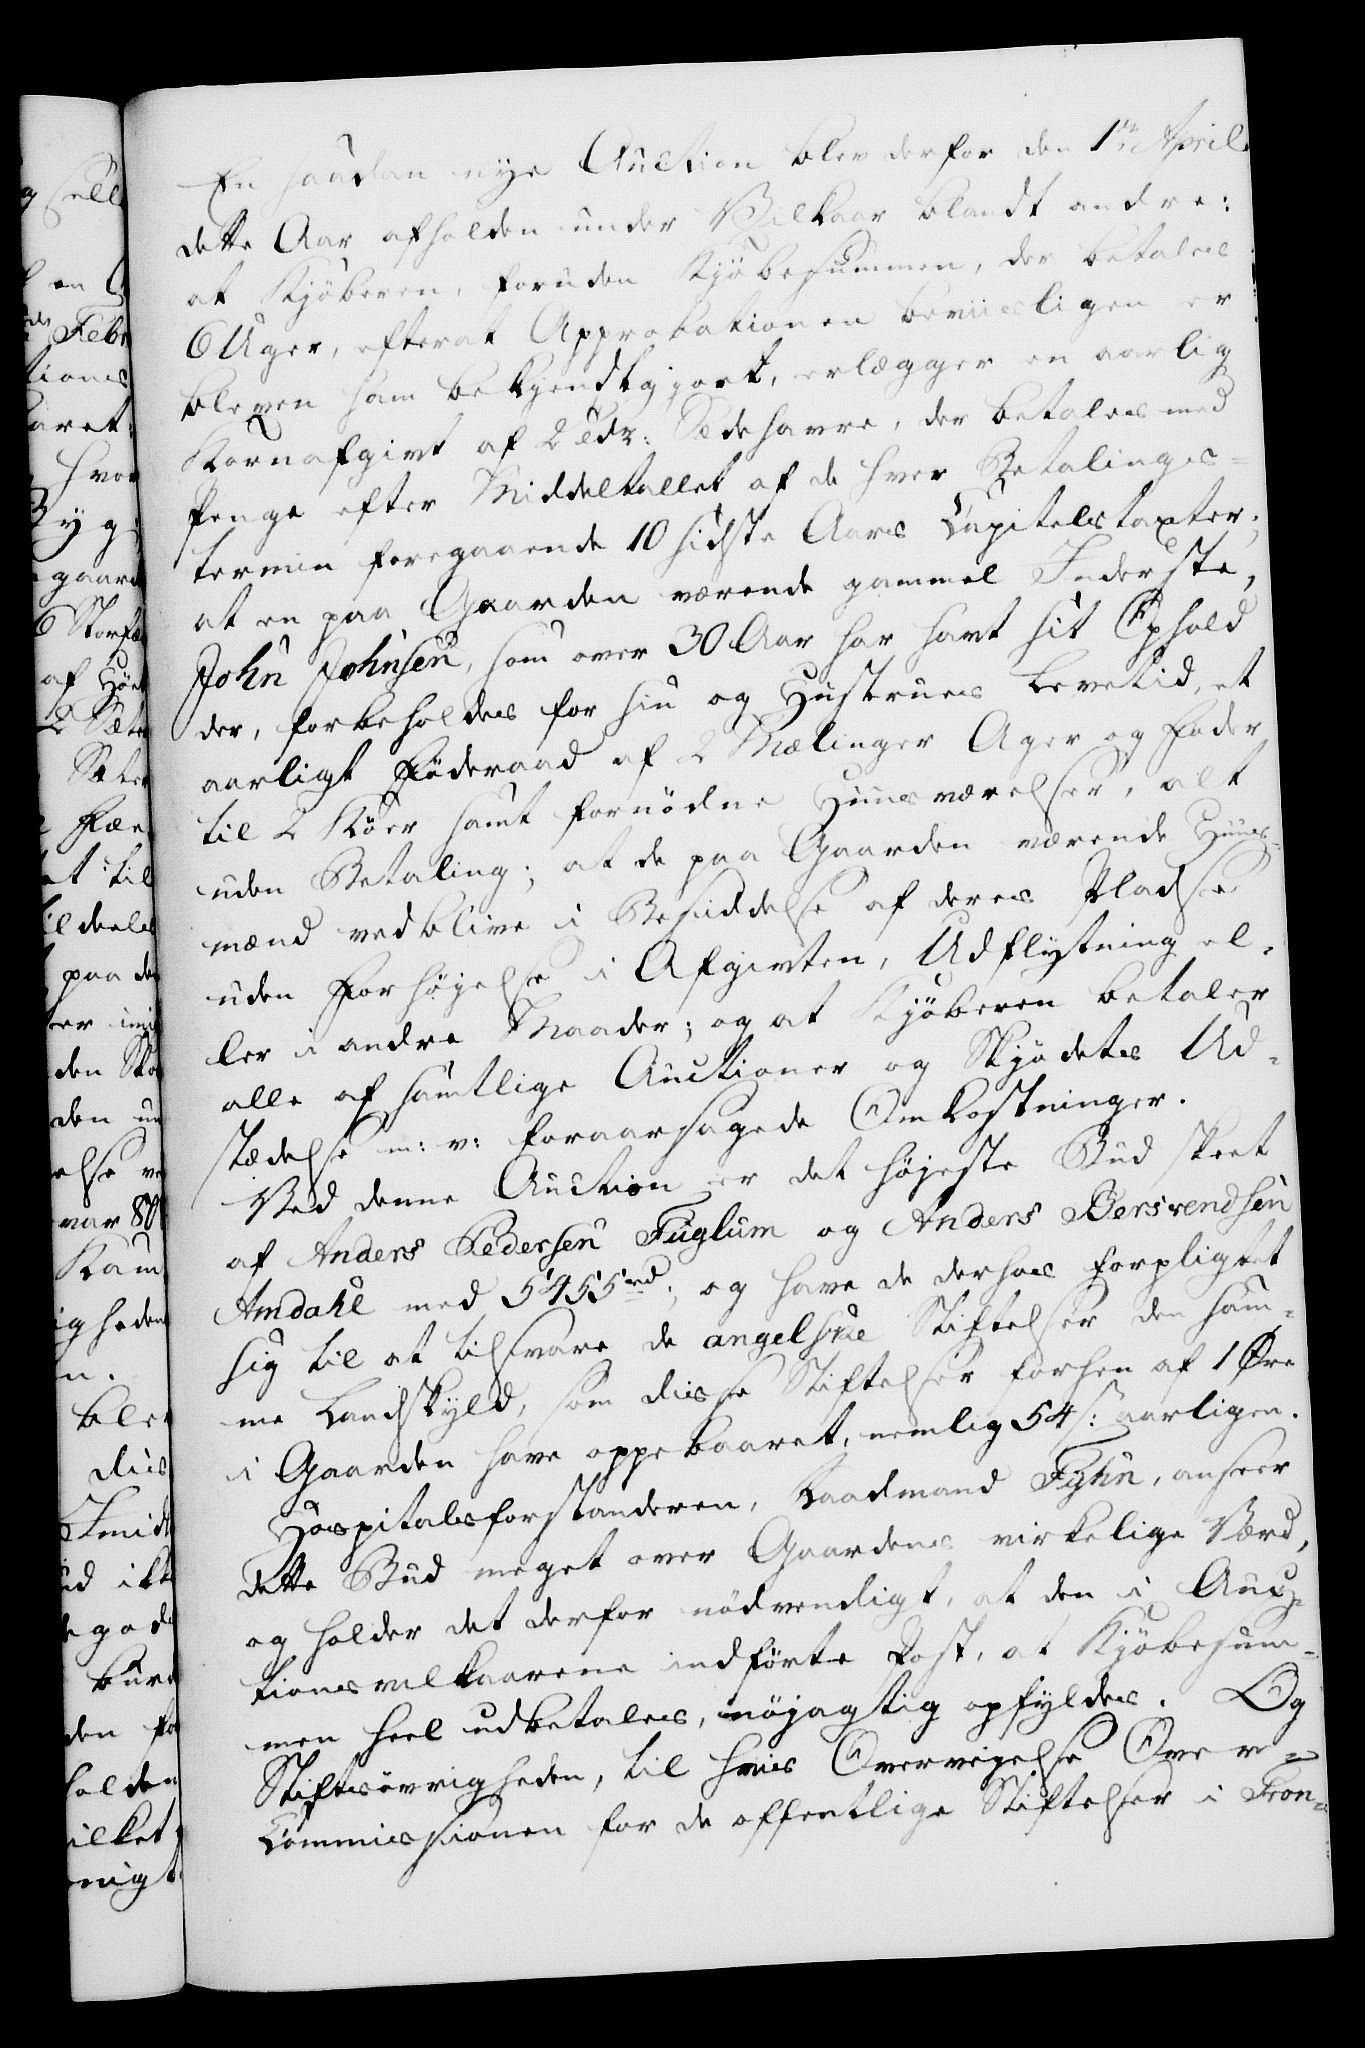 En saadan nye Auction blev derfor den 1ste April
dette Aar afholden under Vilkaar blandt andre:
at Kjøberen, foruden Kjøbesummen, der betales
6 Uger, efterat Approbationen beviisligen er
bleven ham bekjendtgjort, erlægger en aarlig
Kornafgivt af 2 Tdr: Sædehavre, der betales med
Penge efter Middeltallet af de hver Betalings-
termin foregaaende 10 sidste Aars Capitelstaxter;
at en paa Gaarden værende gammel Inderste,
John Johnsen, som over 30 Aar har havt sit Ophold
der, forbeholdes for sin og Hustrues Levetid, et
aarligt Föderaad af 2 Mælinger Ager og Foder
til 2 Köer samt fornödne Huusværelser, alt
uden Betaling; at de paa Gaarden værende Huus-
mænd vedblive i Besiddelse af deres Pladse
uden Forhöyelse i Afgivten, Udflytning el-
ler i andre Maader; og at Kjöberen betaler
alle af samtlige Auctioner og Skjödets Ud-
stædelse m: v: foraarsagede Omkostninger.
Ved denne Auction er det höjeste Bud skeet
af Anders Pedersen Fuglum og Anders Bersvendsen
Amdahl med 5455 rd; og have de derhos forpligtet
sig til at tilsvare de angelske Stiftelser den sam-
me Landskyld, som disse Stiftelser forhen af 1 Øre
i Gaarden have oppebaaret, nemlig 54 s: aarligen.
Hospitalsforstanderen, Raadmand Fyhn, anseer
dette Bud meget over Gaardens virkelige Værd,
og holder det derfor nödvendigt, at den i Auc-
tionsvilkaarene indförte Post, at Kjöbesum-
men heel udbetales, nöjagtig opfyldes. Og
Stiftsövrigheden, til hvis Overveyelse Over-
Commissionen for de offentlige Stiftelser i Tron-